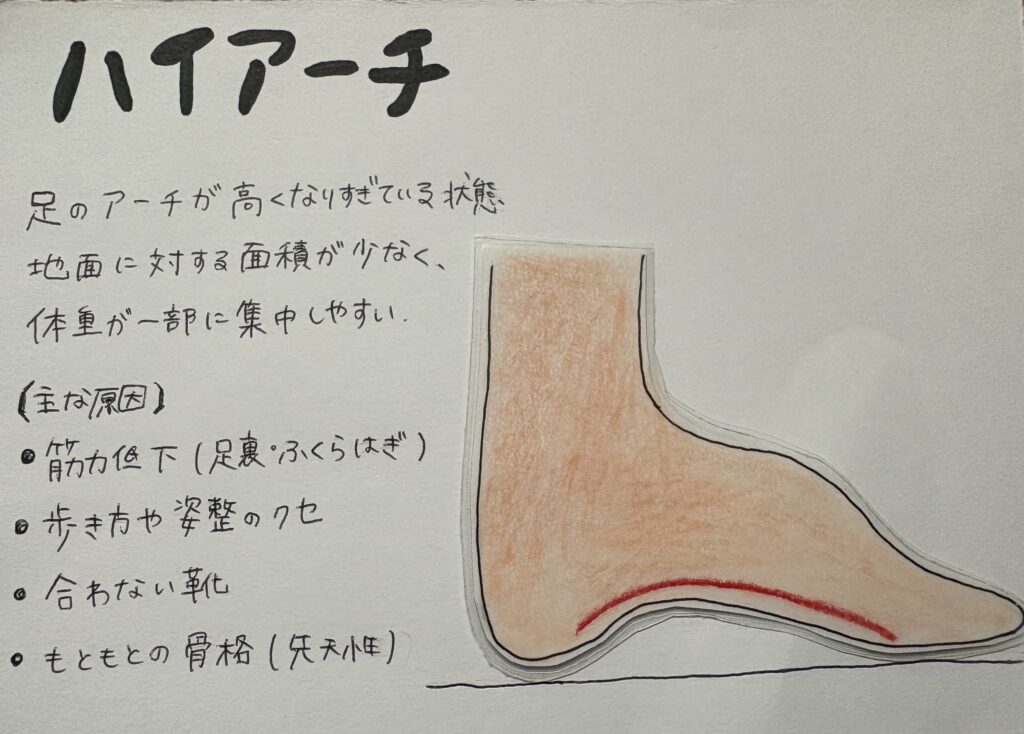 ハイアーチ
足のアーチが高くなりすぎている状態
地面に対する面積が少なく、
体重が一部に集中しやすい.
(主な原因)
• 筋力低下(足裏・ふくらはぎ)
• 歩き方や姿整のクセ
• 合わない靴
• もともとの骨格(先天性)